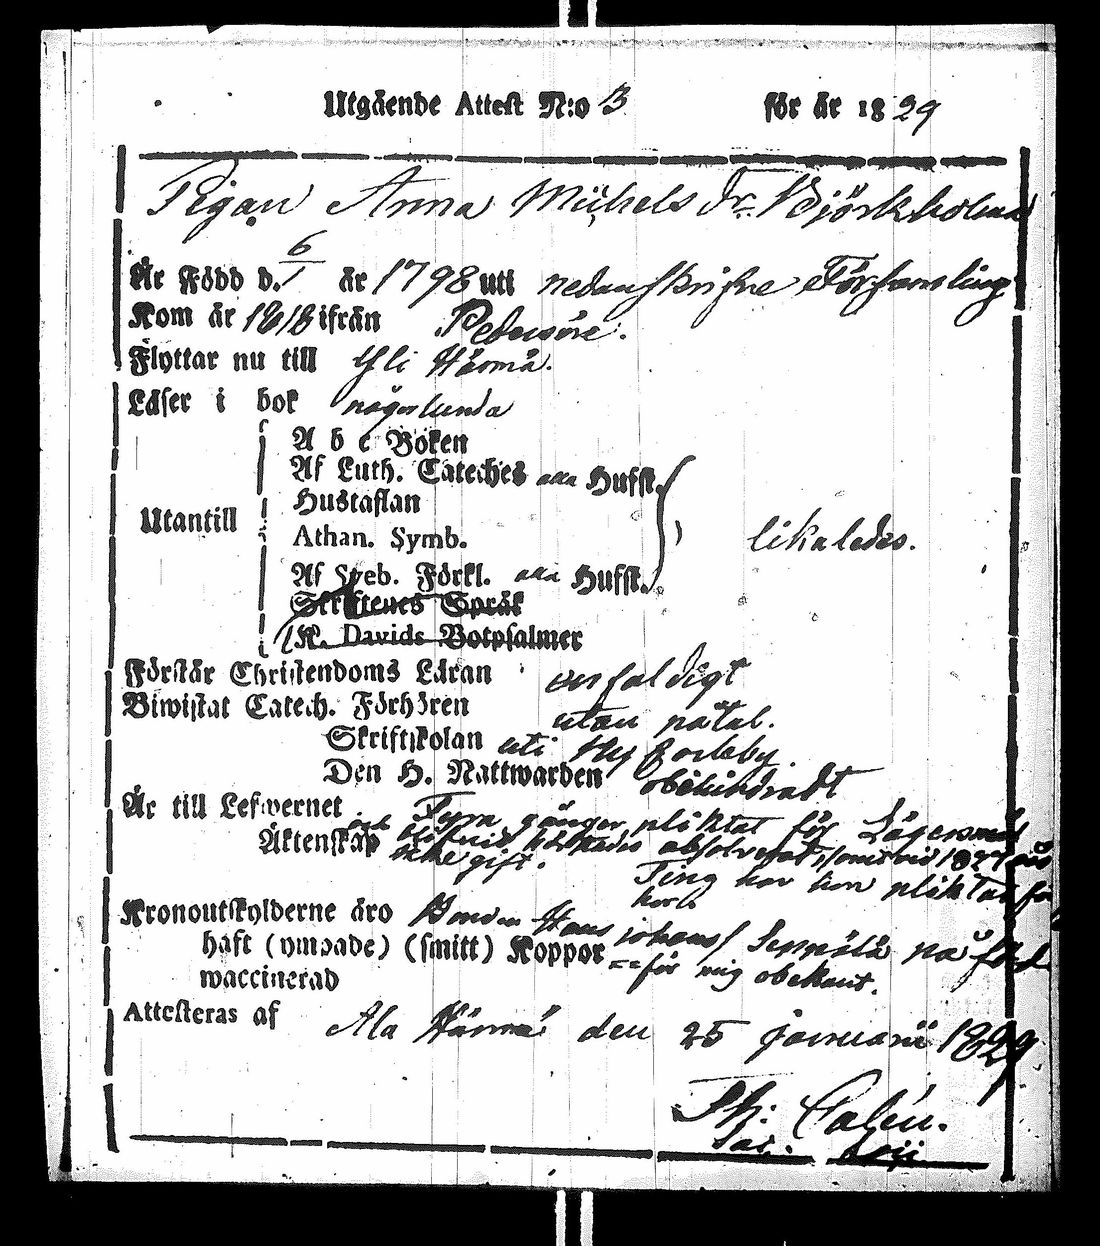 Utgående Attest N:o 3 för år 1829
Pigan Anna Michels Dr. Björkholma
Är Född d. 6/1 år 1798 uti nedanskrifne Församling
Kom år 1818 ifrån Pedersöre.
Flyttar nu till Yli Härmä.
Läser i bok någorlunda
A b c Boken
Af Luth. Cateches alla Hufst.
Hustaflan
Utantill
Athan. Symb. likaledes.
Af Sveb. Förkl. alla Hufst.
Skriftenes Språk
K. Davids Botpsalmer
Förstår Christendoms Läran enfaldigt
Biwistat Catech. Förhören utan påtal.
Skriftskolan uti Ny Carleby.
Den H. Nattwarden obehindradt
Är till Lefwernet Fyra gånger pliktat för Lägersmål
Äktenskap och blifvit absolverad, som vid 1827 års
icke gift. Ting har hon pliktat för
hor
Kronoutskylderne äro Bonden Hans Johans Seppälä på
haft (ympade) (smitt) Koppor för mig obekant.
waccinerad
Attesteras af Ala Härmä den 25 januarii 1829
Th: Calén.
Sac.